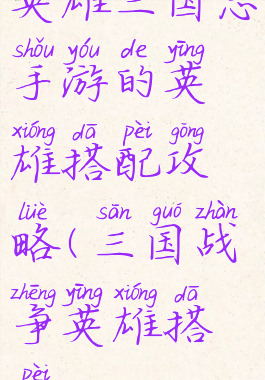 英雄三国志
shǒu yóu de yīng
手游的英
xióng dā pèi gōng
雄搭配攻
lüè sān guó zhàn
略(三国战
zhēng yīng xióng dā
争英雄搭
pèi